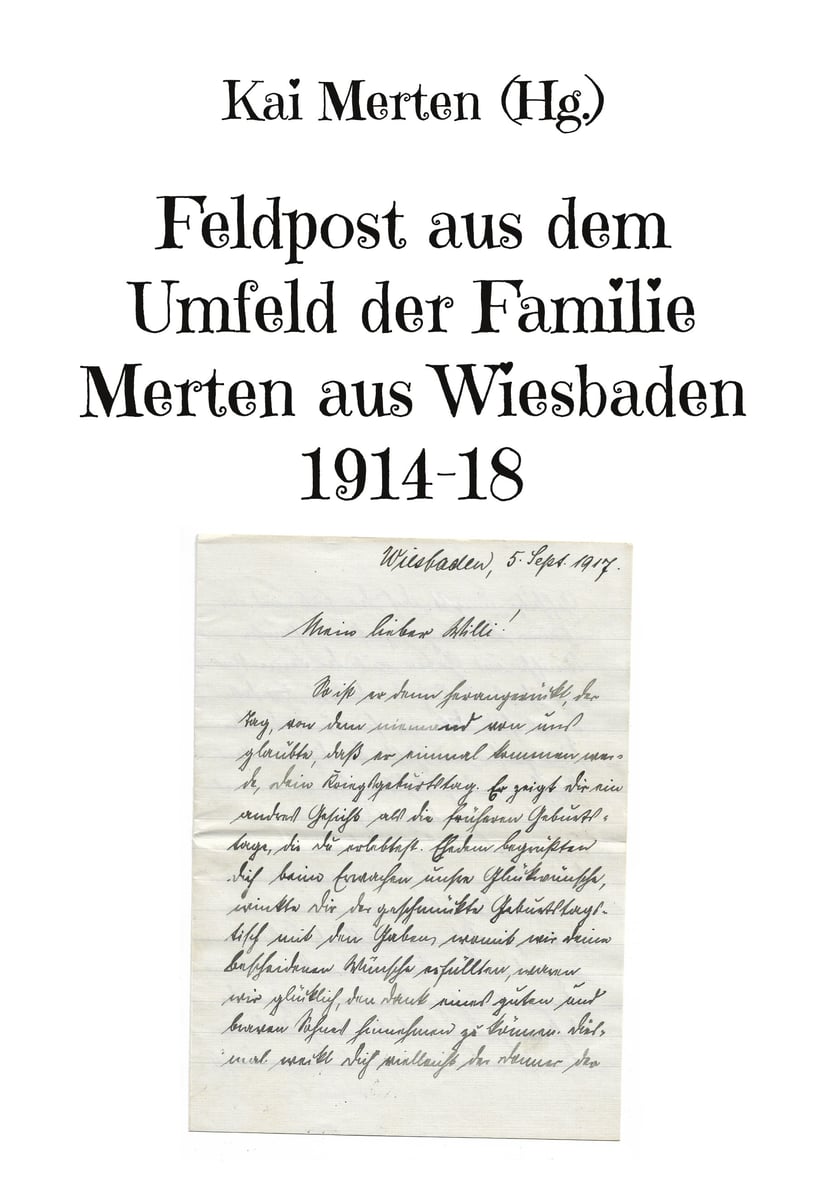 Kai Merten (Hg.)
Feldpost aus dem
Umfeld der Familie
Merten aus Wiesbaden
1914-18
Wiesbaden, 5. Sept. 1917.
Mein lieber Willi!
So ist er denn herangerückt, der
Tag, von dem niemand von uns
glaubte, daß er einmal kommen wer-
de, Dein Kriegsgeburtstag. Er zeigt Dir ein
andres Gesicht als die früheren Geburts-
tage, die Du erlebtest. Ehedem begrüßten
Dich beim Erwachen unsre Glückwünsche,
winkte Dir der geschmückte Geburtstags-
tisch mit den Gaben, womit wir Deine
bescheidenen Wünsche erfüllten, waren
wir glücklich, den Dank eines guten und
braven Sohnes hinnehmen zu können. Dies-
mal weckt Dich vielleicht der Donner der